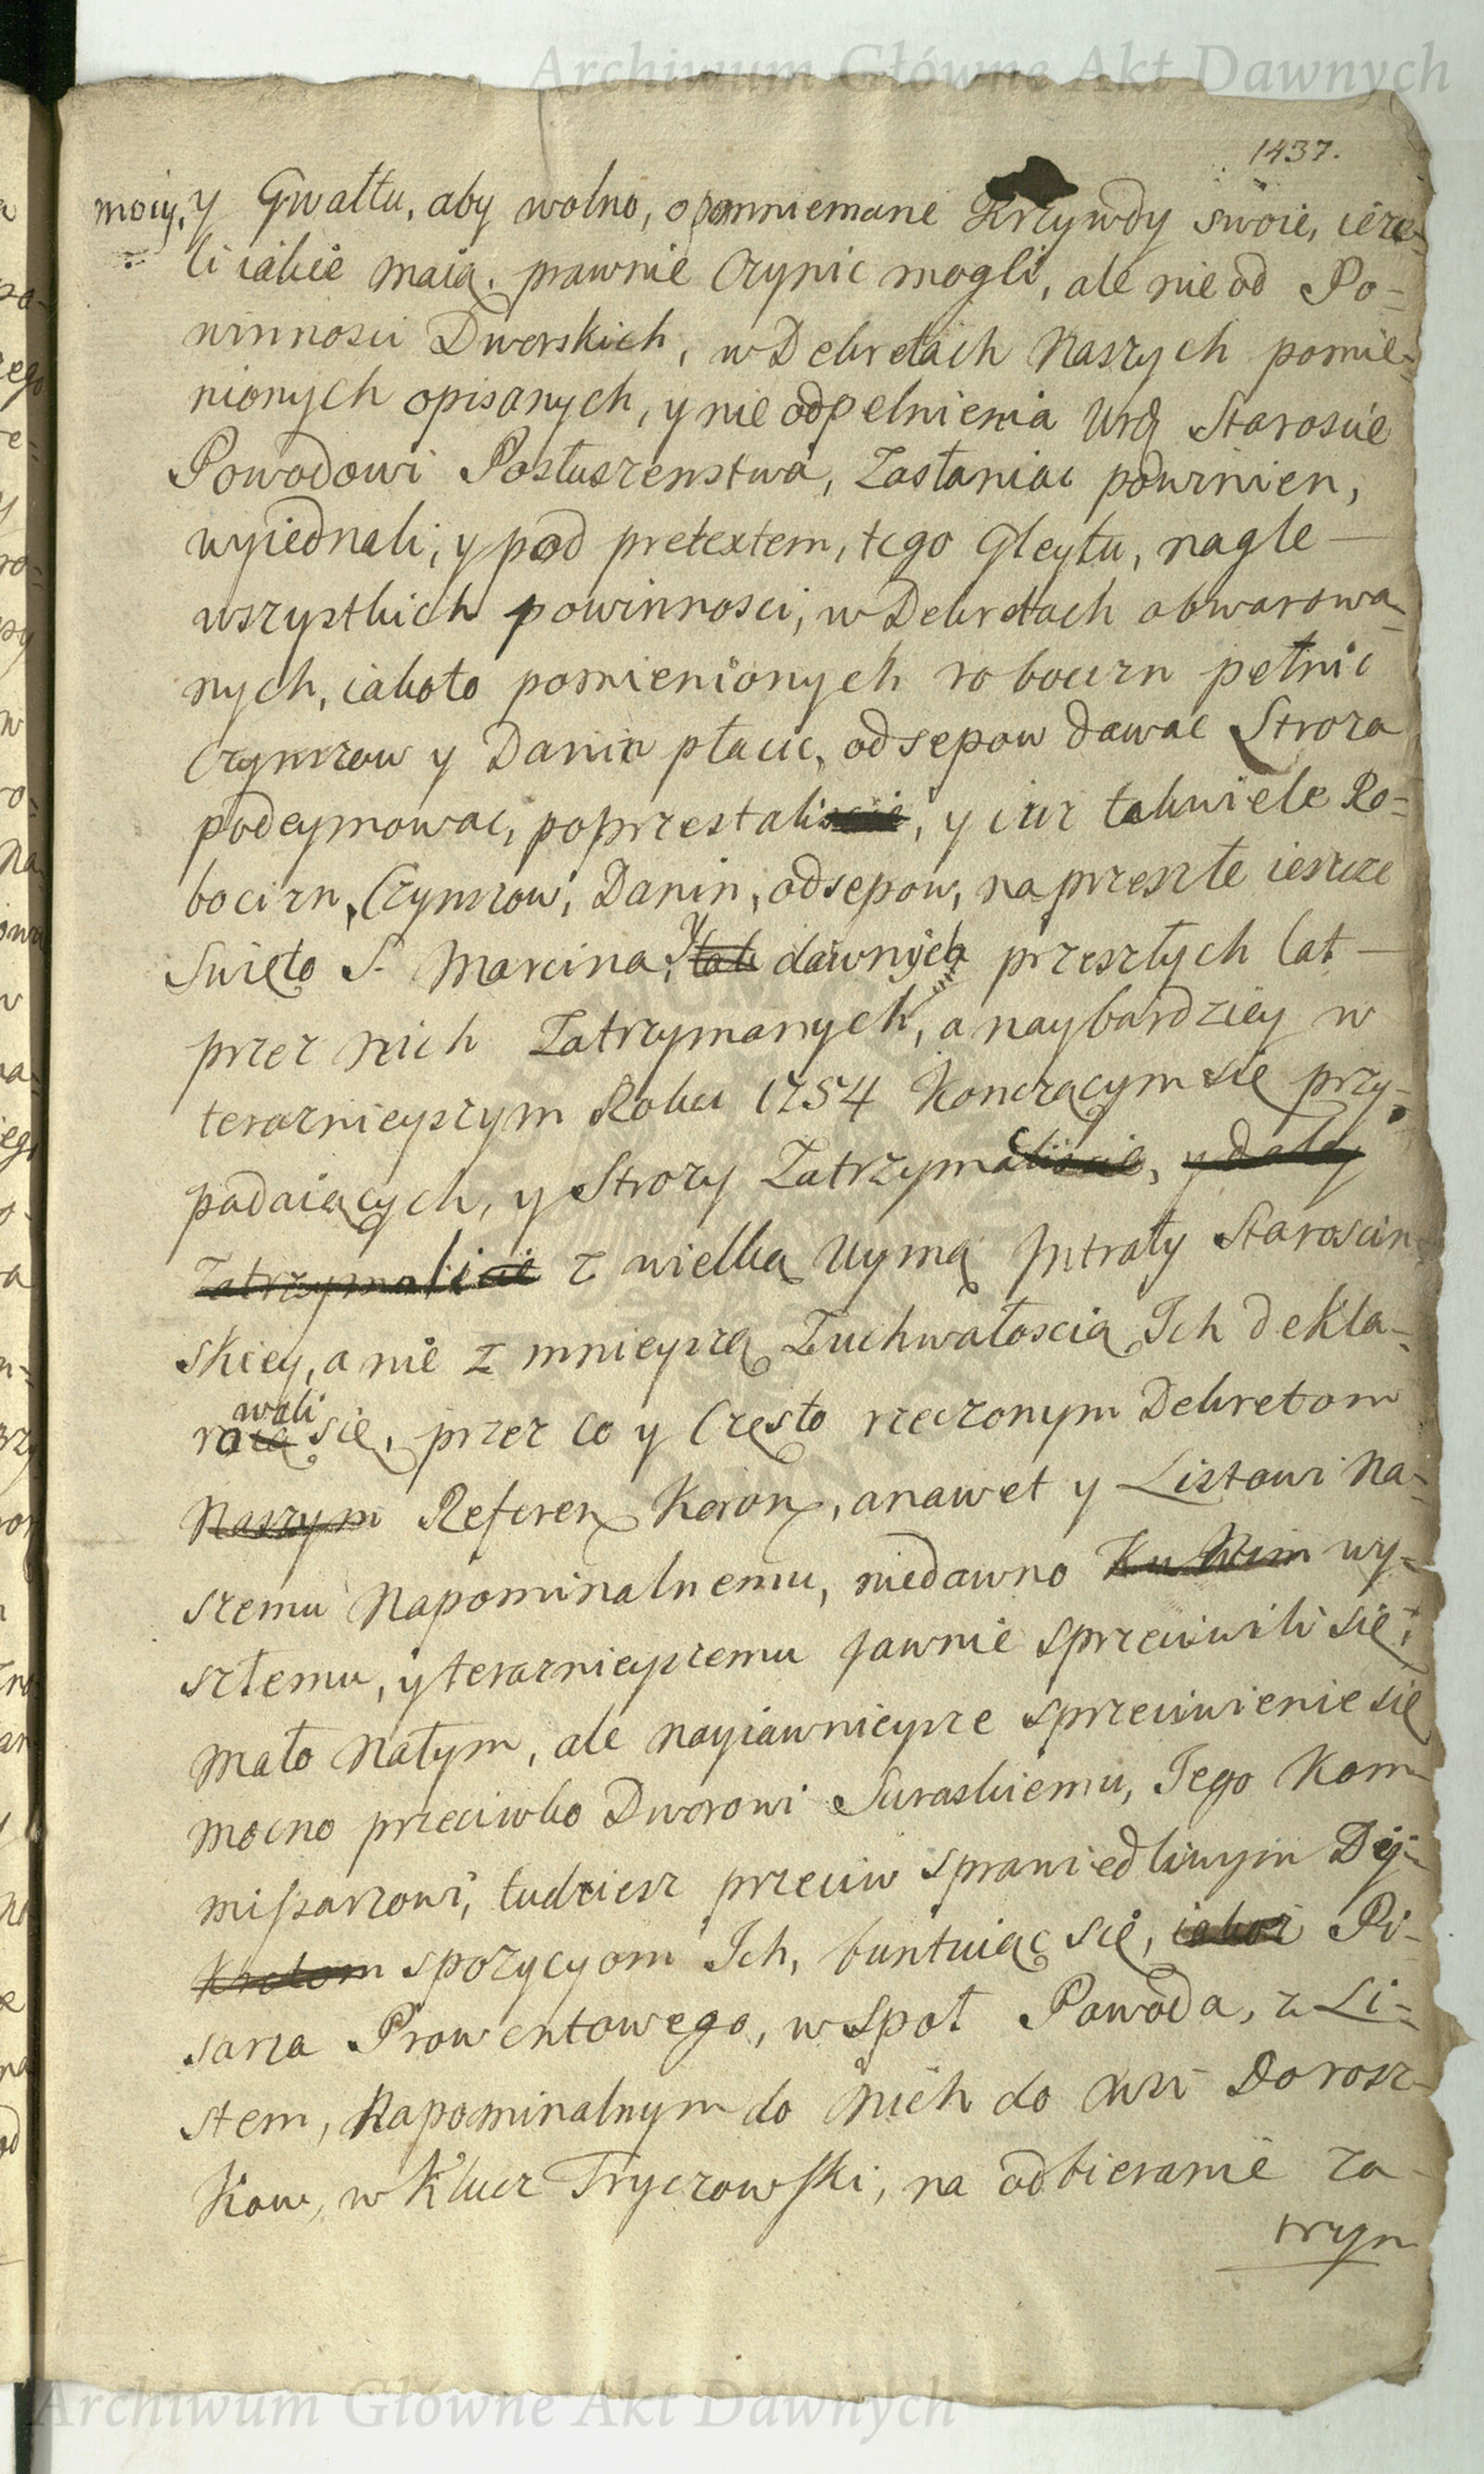 Archiwum Główne Akt Dawnych
1437.
mocy, y Gwałtu, aby wolno, o mniemane Krzywdy swoie, ieże-
li iakie maią, prawnie Czynic mogli, ale nie od Po-
winnosci Dworskich, w Dekretach Naszych pomie-
nionych opisanych, y nie odpełnienia Urd Staroscie
Powodowi Posłuszenstwa, Zasłaniac powinien,
wyiednali, y pod pretextem, tego Gleytu, nagle
wszystkich powinnosci, w Dekretach obwarowa-
nych, iakoto pomienionych robocizn pełnic
Czynszow y Danin płacic, odsepow dawac Stroza
podeymowac, poprzestali, y iuz takwiele Ro-
bocizn, Czynszow, Danin, odsepow, na przeszłe ieszcze
Swięto S. Marcina, y tak dawnych przeszłych lat
przez nich Zatrzymanych, a naybardziey w
teraznieyszym Roku 1754 Konczącym się przy-
padaiących, y Strozy Zatrzymac, y daley
Zatrzymali z wielką Uymą Intraty Staroscin-
skiey, a nie z mnieyszą Zuchwałoscią Ich dekla-
wali
ruią się, przez co y Często rzeczonym Dekretom
Naszym Referen Koron, a nawet y Listowi Na-
szemu Napominalnemu, niedawno Ku Nim wy-
szłemu, y teraznieyszemu Jawnie sprzeciwili się,
Mało Natym, ale nayiawnieysze sprzeciwienie się
mocno przeciwko Dworowi Suraskiemu, Jego Kom-
missarzowi, tudziesz przeciw sprawiedliwym Dy-
Kretom spozycyom Ich, buntuiąc się, iakoż Pi-
sarza Prowentowego, w Społ Powoda, z Li-
stem, Napominalnym do Nich do Wsi Dorosz-
Kow, w Klucz Tryczowski, na odbieranie za-
trzym
Archiwum Główne Akt Dawnych